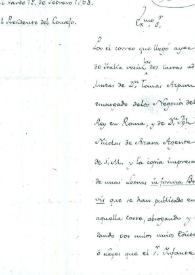 el Pardo 12. de Febrero 1768.
Presidente del Consejo.
Exmo. Sr.
Por el correo que llegó ayer
de Italia
de Dn. Tomas Azpuru
encargado de los Negocios del
Rey en Roma, y de Dn.
Nicolas de Azara Agente
de S.M. y la copia impresa
de unas letras in forma Bre-
vis que se han publicado en
aquella corte, abrogando, y
dando por nulos varios Edictos
ó leyes que el Sr. Infante